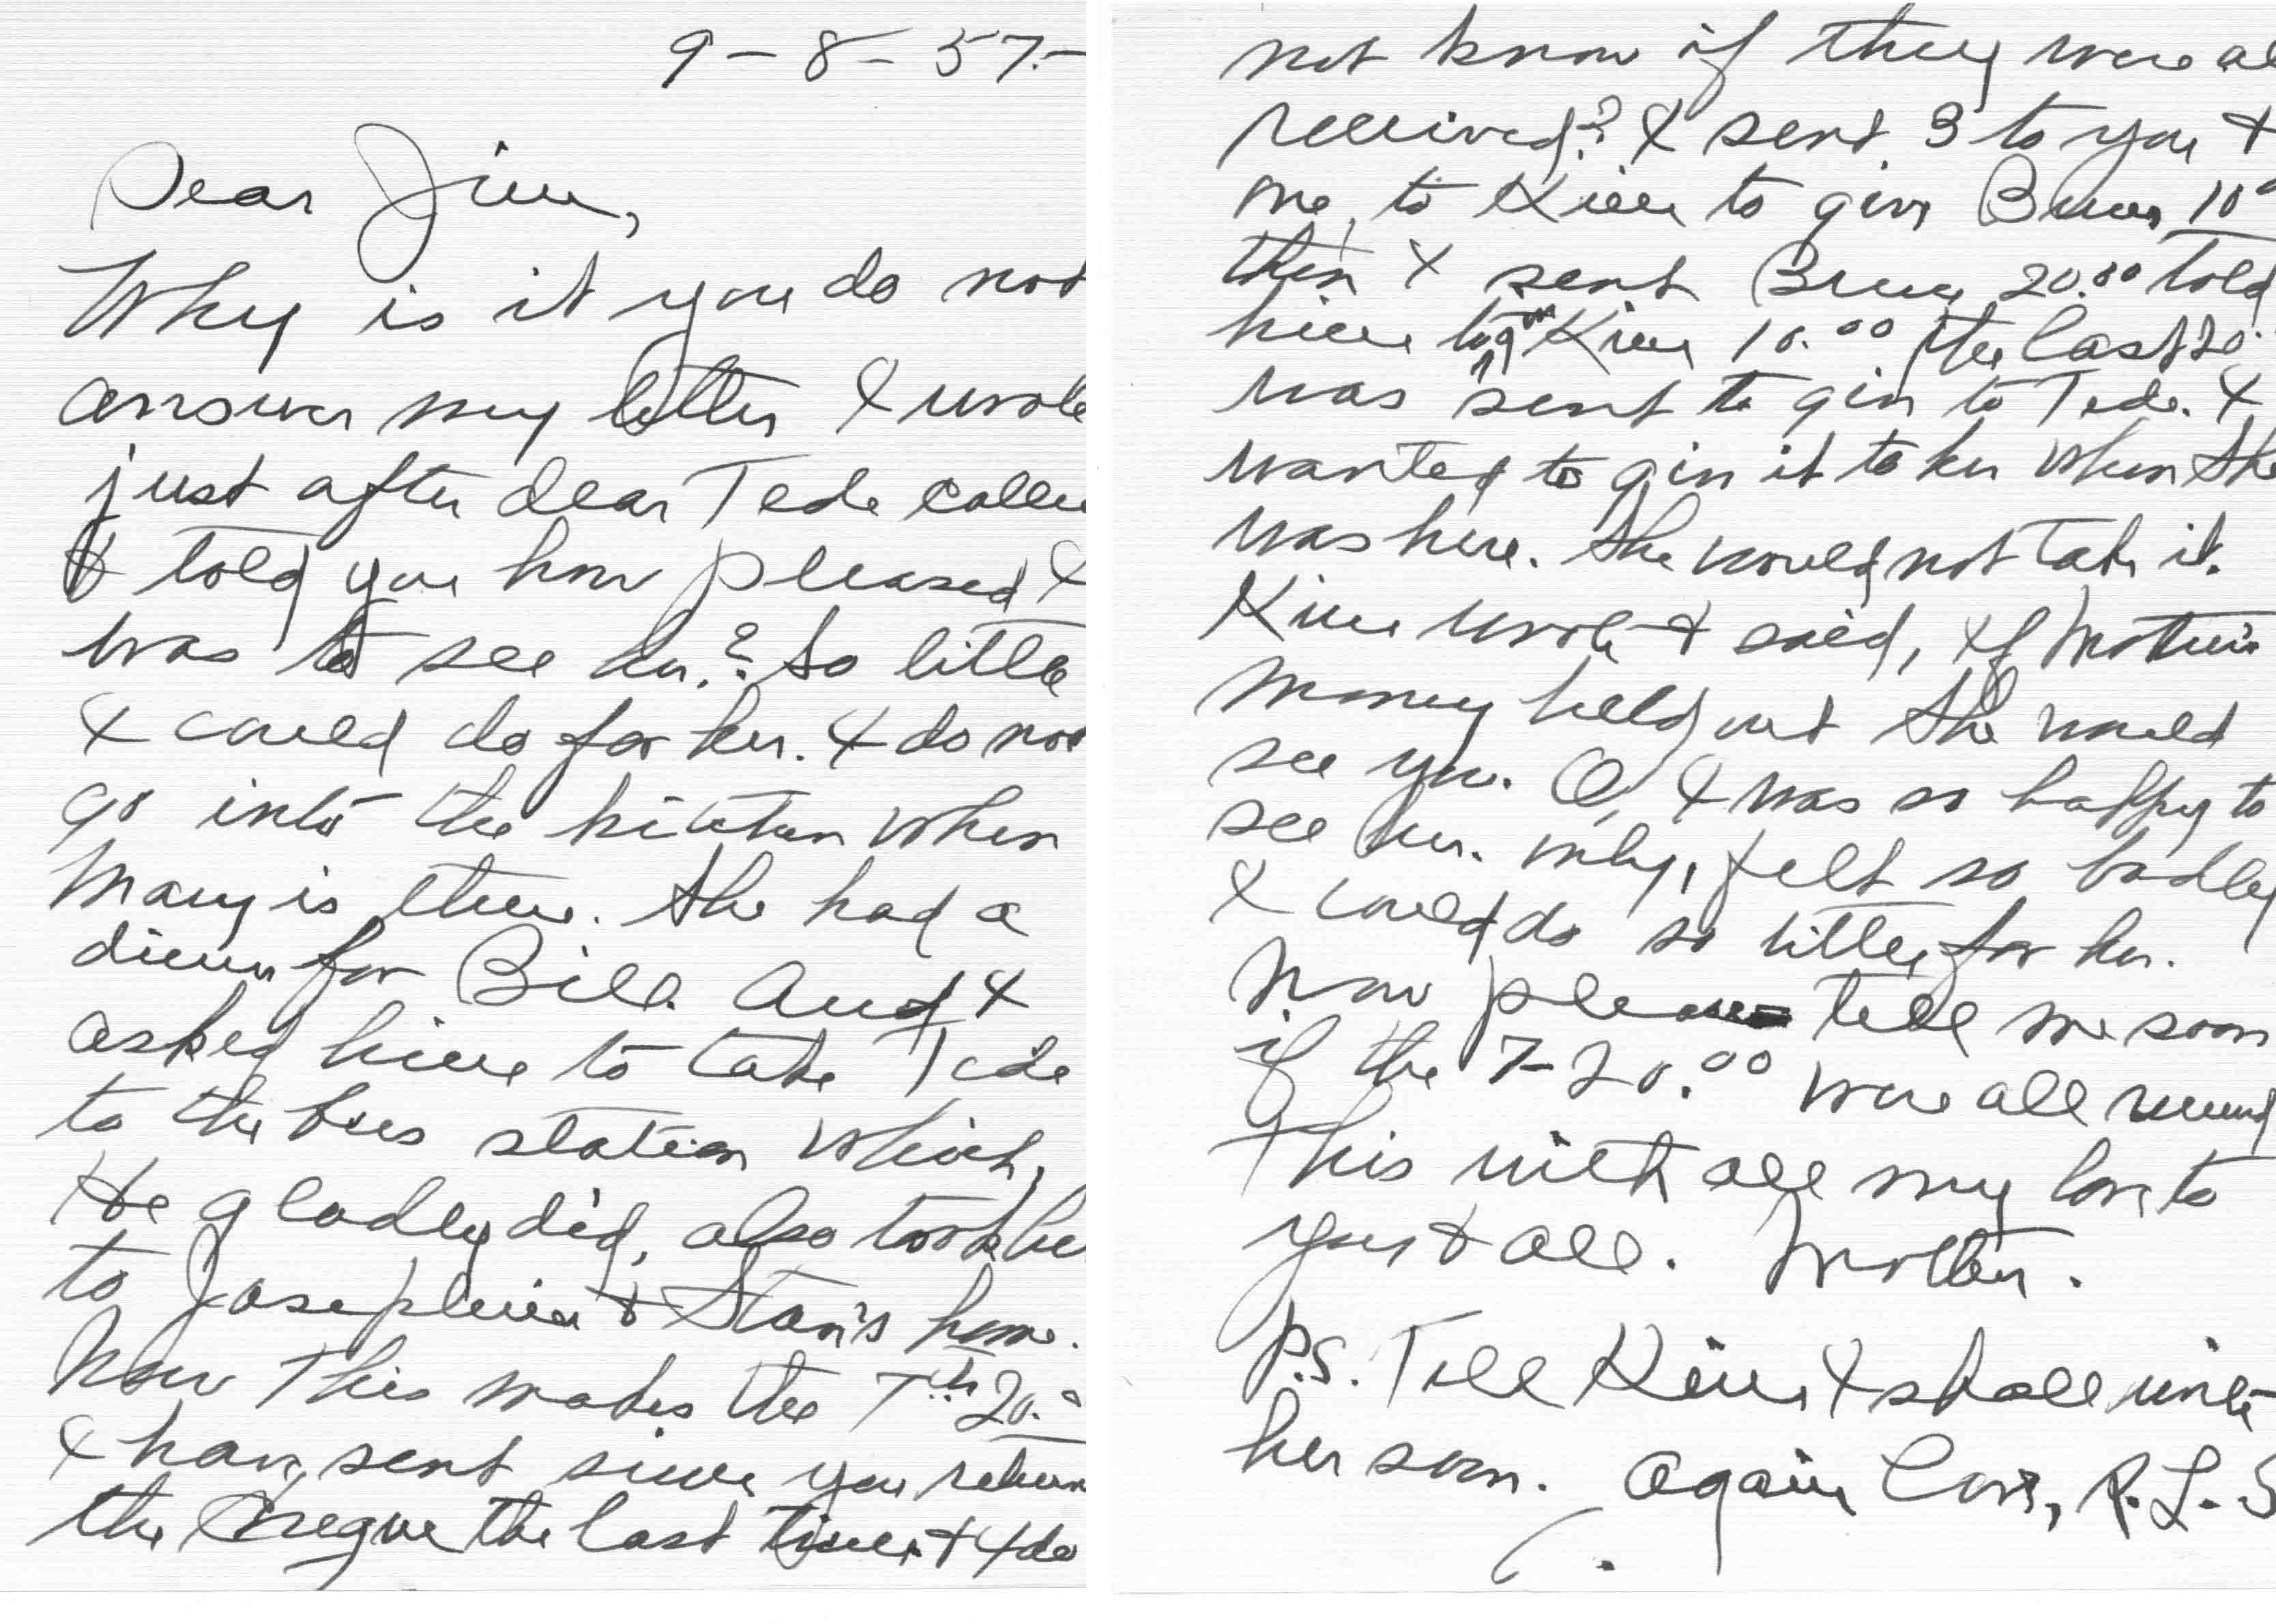 9 - 8 - 57.-
Dear Jim,
Why is it you do not
answer my letter I wrote
just after dear Tede calle
I told you how pleased I
was to see her.? So little
I could do for her. I do not
go into the kitchen when
Mary is there. She had a
dinner for Bill. And I
asked him to take Tede
to the bus station which,
He gladly did, also took he
to Josephine & Stan's home.
Now This makes the 7th 20.
I have sent since you return
the the last time & I do
not know if they were al
received? I sent 3 to you &
one, to Kim to give Bruce 10
then I sent Bruce 20.00 told
him to give Kim 10.00 the last 20.
was sent to give to Tede. I
wanted to give it to her when she
was here. She would not take it.
Kim wrote & said, if Mother's
money held out she would
see you. O, I was so happy to
see her. only, felt so badly
I could do so little for her.
Now please tell me soon
if the 7-20.00 were all received
This with all my love to
you & all. Mother.
P.S. Tell Kim I shall write
her soon. Again Love, R. L. S